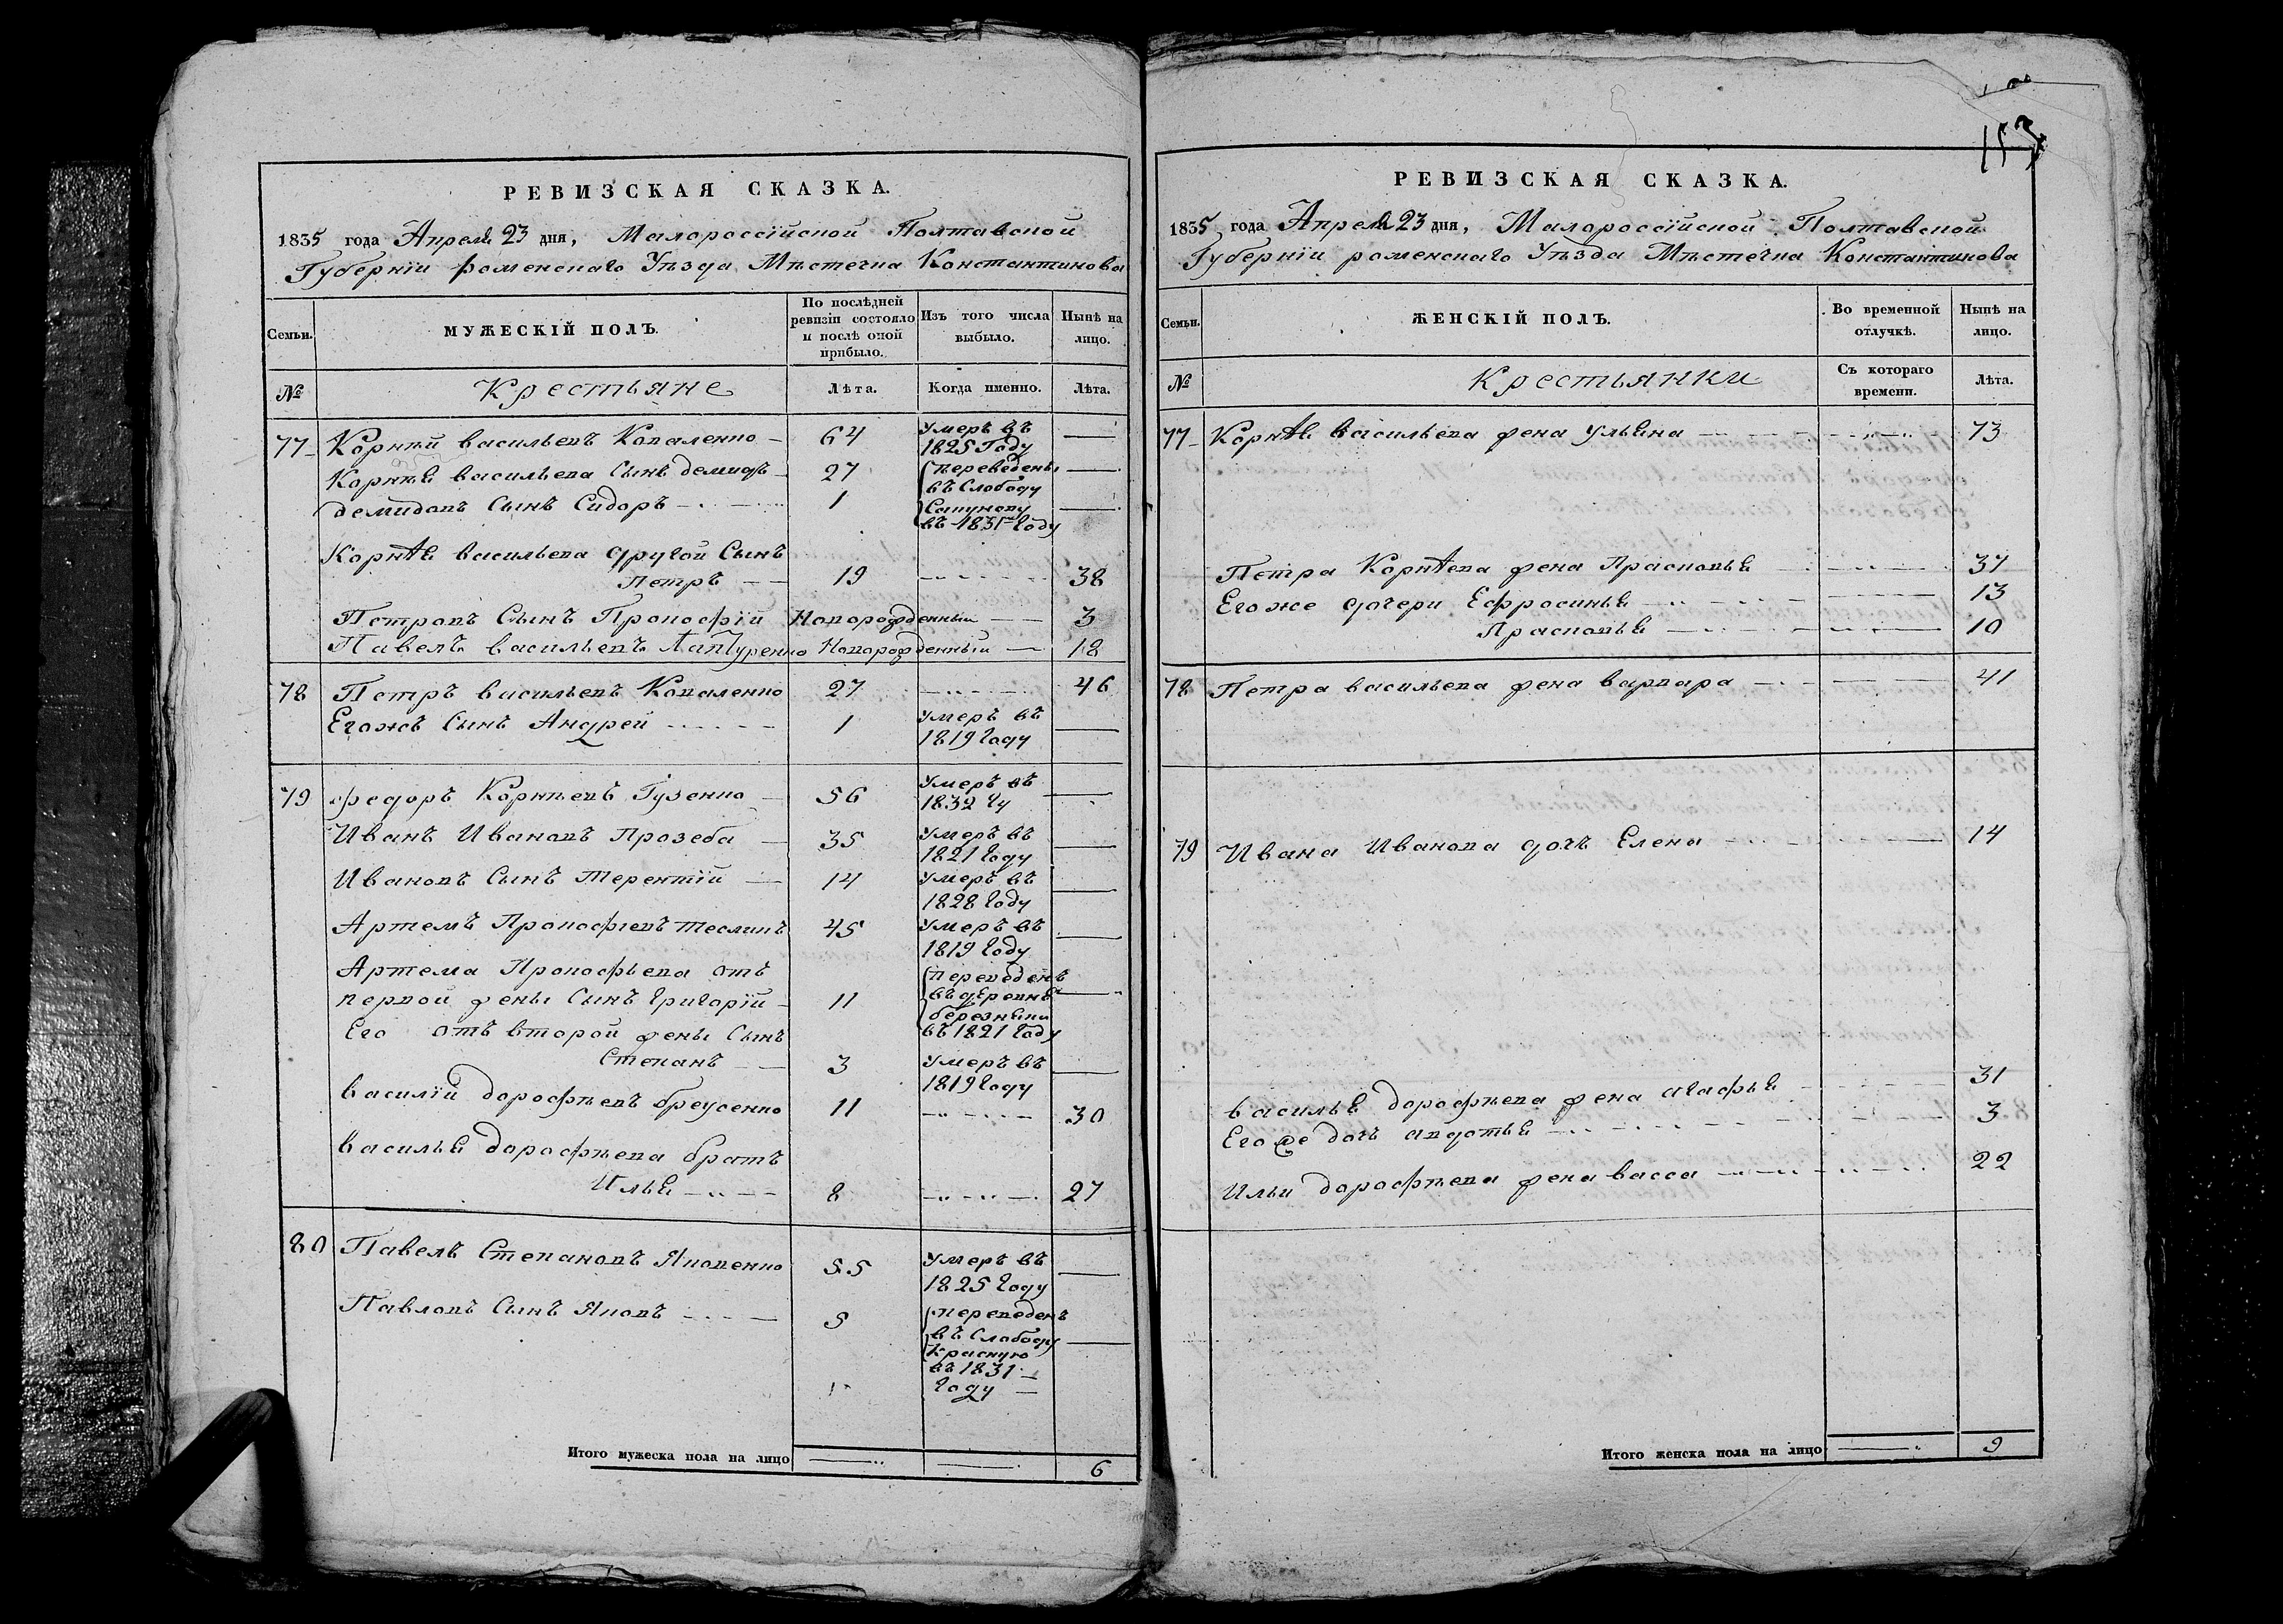 РЕВИЗСКАЯ СКАЗКА.
1835 года Апреля 23 дня, Малороссійской Полтавской
Губерніи роменскаго Уѣзда Мѣстечка Константинова
Семьи.
МУЖЕСКІЙ ПОЛЪ.
По послѣдней ревизіи состояло и послѣ оной прибыло.
Изъ того числа выбыло.
Нынѣ на лицо.
№
Крестьяне
Лѣта.
Когда именно.
Лѣта.
77 Корнѣй васильевъ Коваленко 64 умеръ въ 1825 Году
Корнѣя васильева Сынъ демидъ 27 переведены
въ Слободу
демидовъ Сынъ Сидоръ 1
въ 1831 году
Корнѣя васильева другой Сынъ
Петръ 19 38
Петровъ Сынъ Прокофій Новорожденный 3
Павелъ васильевъ Новорожденный 18
78 Петръ васильевъ Коваленко 27 46
Егожъ Сынъ Андрей 1 умеръ въ 1819 году
79 федоръ Корнѣевъ Гузенко 56 умеръ въ 1832 гу
Иванъ Ивановъ Прозеба 35 умеръ въ 1821 году
Ивановъ Сынъ терентій 14 умеръ въ 1828 году
Артемъ Прокофіевъ 45 умеръ въ 1819 году
Артема Прокофьева отъ
первой жены Сынъ григорій 11 переведенъ въ деревню
въ 1821 году
Его отъ второй жены Сынъ
Степанъ 3 умеръ въ 1819 году
василій дорофѣевъ бреусенко 11 30
василья дорофѣева братъ
Илья 8 27
80 Павелъ Степановъ Яковенко 55 умеръ въ 1825 году
Павловъ Сынъ Яковъ 9 переведенъ
въ Слободу
Красную
въ 1831
году
Итого мужеска пола на лицо 6
153
РЕВИЗСКАЯ СКАЗКА.
1835 года Апреля 23 дня, Малороссійской Полтавской
Губерніи роменскаго Уѣзда Мѣстечка Константинова
Семьи.
ЖЕНСКІЙ ПОЛЪ.
Во временной отлучкѣ.
Нынѣ на лицо.
№
Крестьянки
Съ котораго времени.
Лѣта.
77 Корнѣя васильева жена ульяна 73
Петра Корнѣева жена Прасковья 37
Его же дочери Ефросинья 13
Прасковья 10
78 Петра васильева жена варвара 41
79 Ивана Иванова дочь Елена 14
василья дорофѣева жена агафья 31
Егоже дочь авдотья 3
Ильи дорофѣева жена васса 22
Итого женска пола на лицо 9